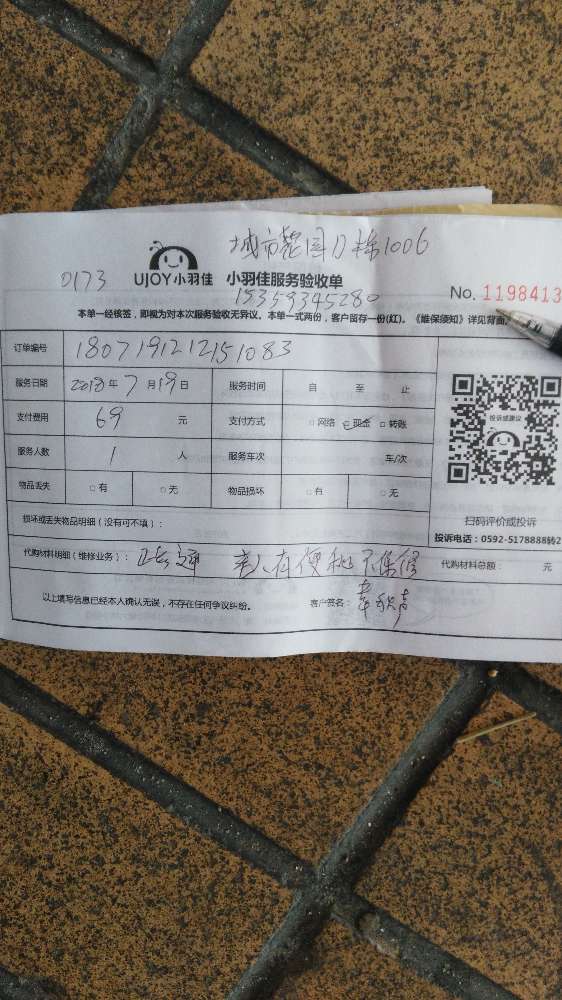 城市花园D栋1006
0173 UJOY小羽佳 小羽佳服务验收单
15359345280
No. 1198413
本单一经核签，即视为对本次服务验收无异议。本单一式两份，客户留存一份(红)。《维保须知》详见背面。
订单编号 180719121251083
服务日期 2018年7月19日 服务时间 自 至 止
支付费用 69 元 支付方式 □网络 □现金 □转账
服务人数 1 人 服务车次 车/次
物品丢失 □有 □无 物品损坏 □有 □无
投诉或建议
扫码评价或投诉
投诉电话：0592-5178888转2
损坏或丢失物品明细（没有可不填）：
代购材料明细（维修业务）： 有便秘不保修
代购材料总额： 元
以上填写信息已经本人确认无误，不存在任何争议纠纷。 客户签名：